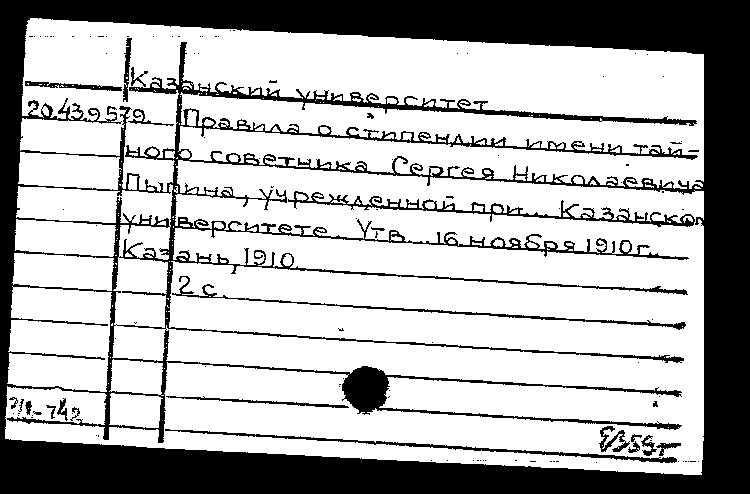 Казанский университет
20.43.9.579. Правила о стипендии имени тай-
ного советника Сергея Николаевича
Пыпина, учрежденной при... Казанском
университете. Утв. 16 ноября 1910 г.
Казань, 1910.
2 с.
-742